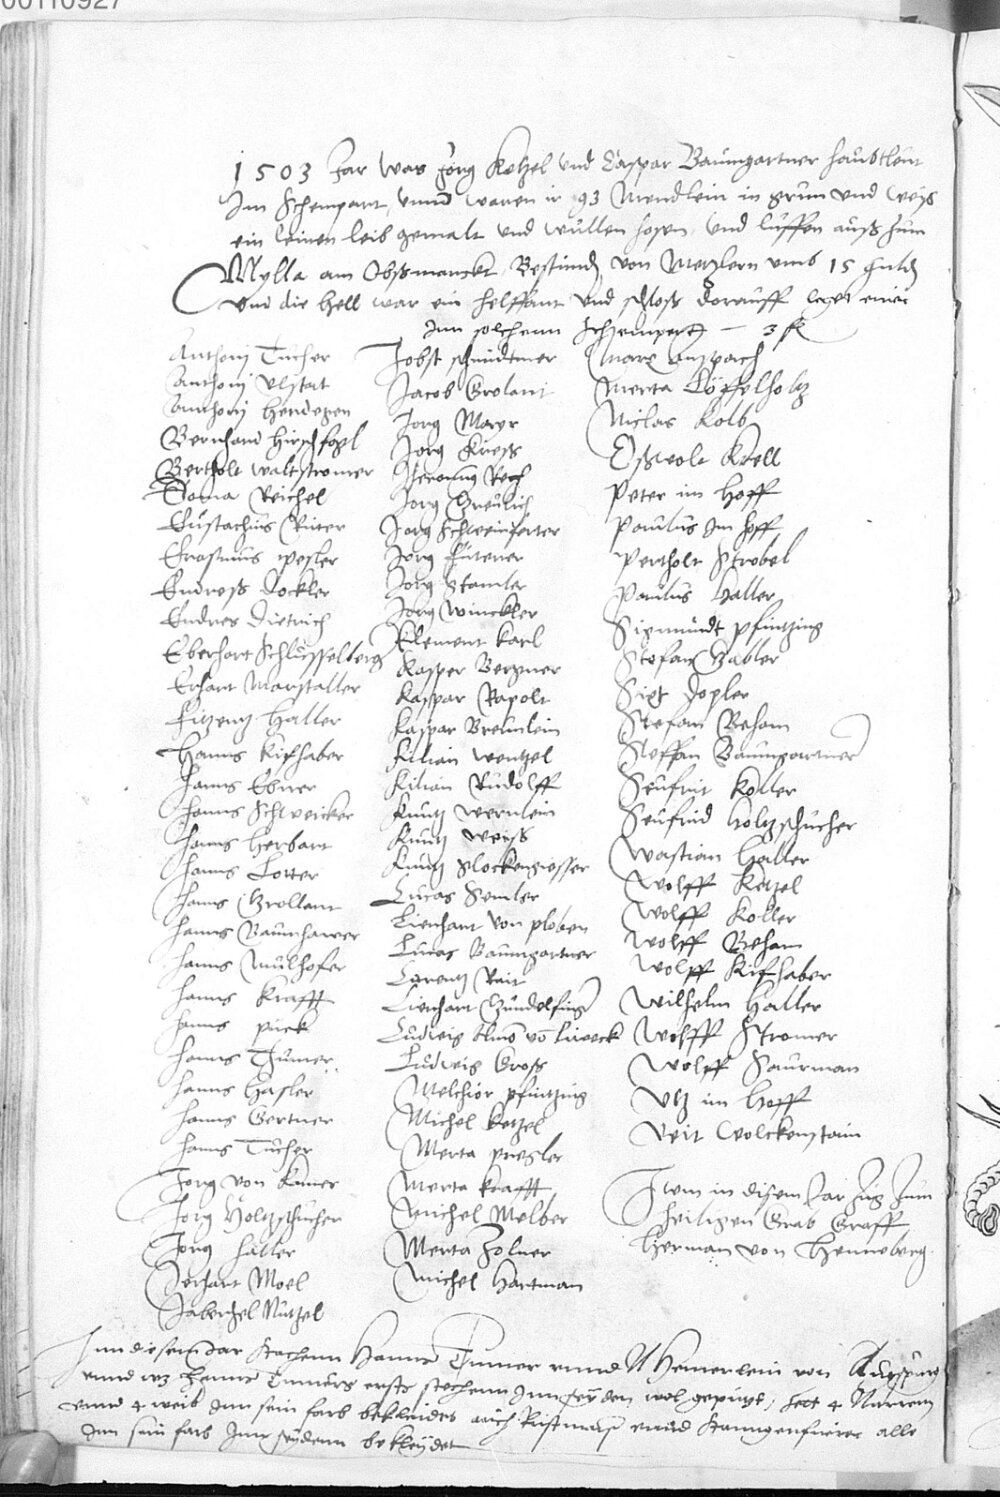 00110927
1503 Jar was Jorg Ketzel und Caspar Baumgartner haubtleut
Im Schempart, unnd waren ir 93 Mendlein in grun und weys
ein leinen leib gemalt und wullen hosen, und luffen auß zum
Mylla am Obßmarckt, Bestund von Metzlern umb 15 guld
und die hell war ein helffant und schloß darauff legt einer
Inn solchenn Schempert — 3 fl
Anthonj Tucher
Anthonj Ulstat
Anthonj Hendegen
Bernhard Hirschfogl
Bertholt Waltstromer
Doma Reichel
Eustachius Riter
Erasmus Pesler
Endreß Dockler
Endres Dietrich
Eberhart Schlusselberg
Erhart Marstaller
Fitzentz Haller
Hanns Kifhaber
Hanns Ebner
Hanns Schweicker
Hanns Herbart
Hanns Lotter
Hanns Grollant
Hanns Baumhawer
Hanns Mulhofer
Hanns Krafft
Hanns Puck
Hanns Thumer
Hanns Hasler
Hanns Gertner
Hanns Tucher
Jorg von Kamer
Jorg Holtzschucher
Jorg Haller
Gerhart Moel
Gabergel Nutzel
Jobst Schmidtmer
Jacob Grolant
Jorg Mayr
Jorg Kreß
Jeronimus Rech
Jorg Greulich
Jorg Schweinferter
Jorg Futerer
Jorg Stamler
Jorg Winckler
Klement Karl
Kasper Bergner
Kaspar Rapolt
Kaspar Breunlein
Kilian Wentzel
Kilian Rudolff
Kuntz Wernlein
Kuntz Weyß
Kuntz Glockengiesser
Lucas Semler
Lienhart von Ploben
Lucas Baumgartner
Lorentz Rait
Lienhart Gundelfinger
Ludwig
Ludwig Groß
Melchior Pfintzing
Michel Ketzel
Merta Pregler
Merta Krafft
Michel Melber
Merta Zolner
Michel Hartman
Marx Anspach
Merta Löffelholtz
Niclas Kolb
Oßwolt Krell
Peter im Hoff
Paulus Im Hoff
Pertholt Strobel
Paulus Haller
Sigmundt Pfintzing
Stefan Gabler
Sigt Topler
Stefan Beham
Steffan Baumgartner
Seufrit Koller
Seufrid Holtzschucher
Wastian Haller
Wolff Ketzel
Wolff Koller
Wolff Beham
Wolff Kifhaber
Wilhelm Haller
Wolff Stromer
Wolff Saurman
Utz im Hoff
Veit Wolckenstain
Item in disem Jar zug zum
heiligen Grab Graff
Herman von Henneberg
Inn diesem Jar stachenn Hanns Tumer unnd Hemerlein von Augspurg
unnd wz Hanns Tumers erstes stechenn Inn seyden wol geputzt, hett 4 Narren
unnd 4 weib Inn sein farb bekleidet auch unnd Stanngenfurer alle
Inn sein farb Inn seydenn bekleydet